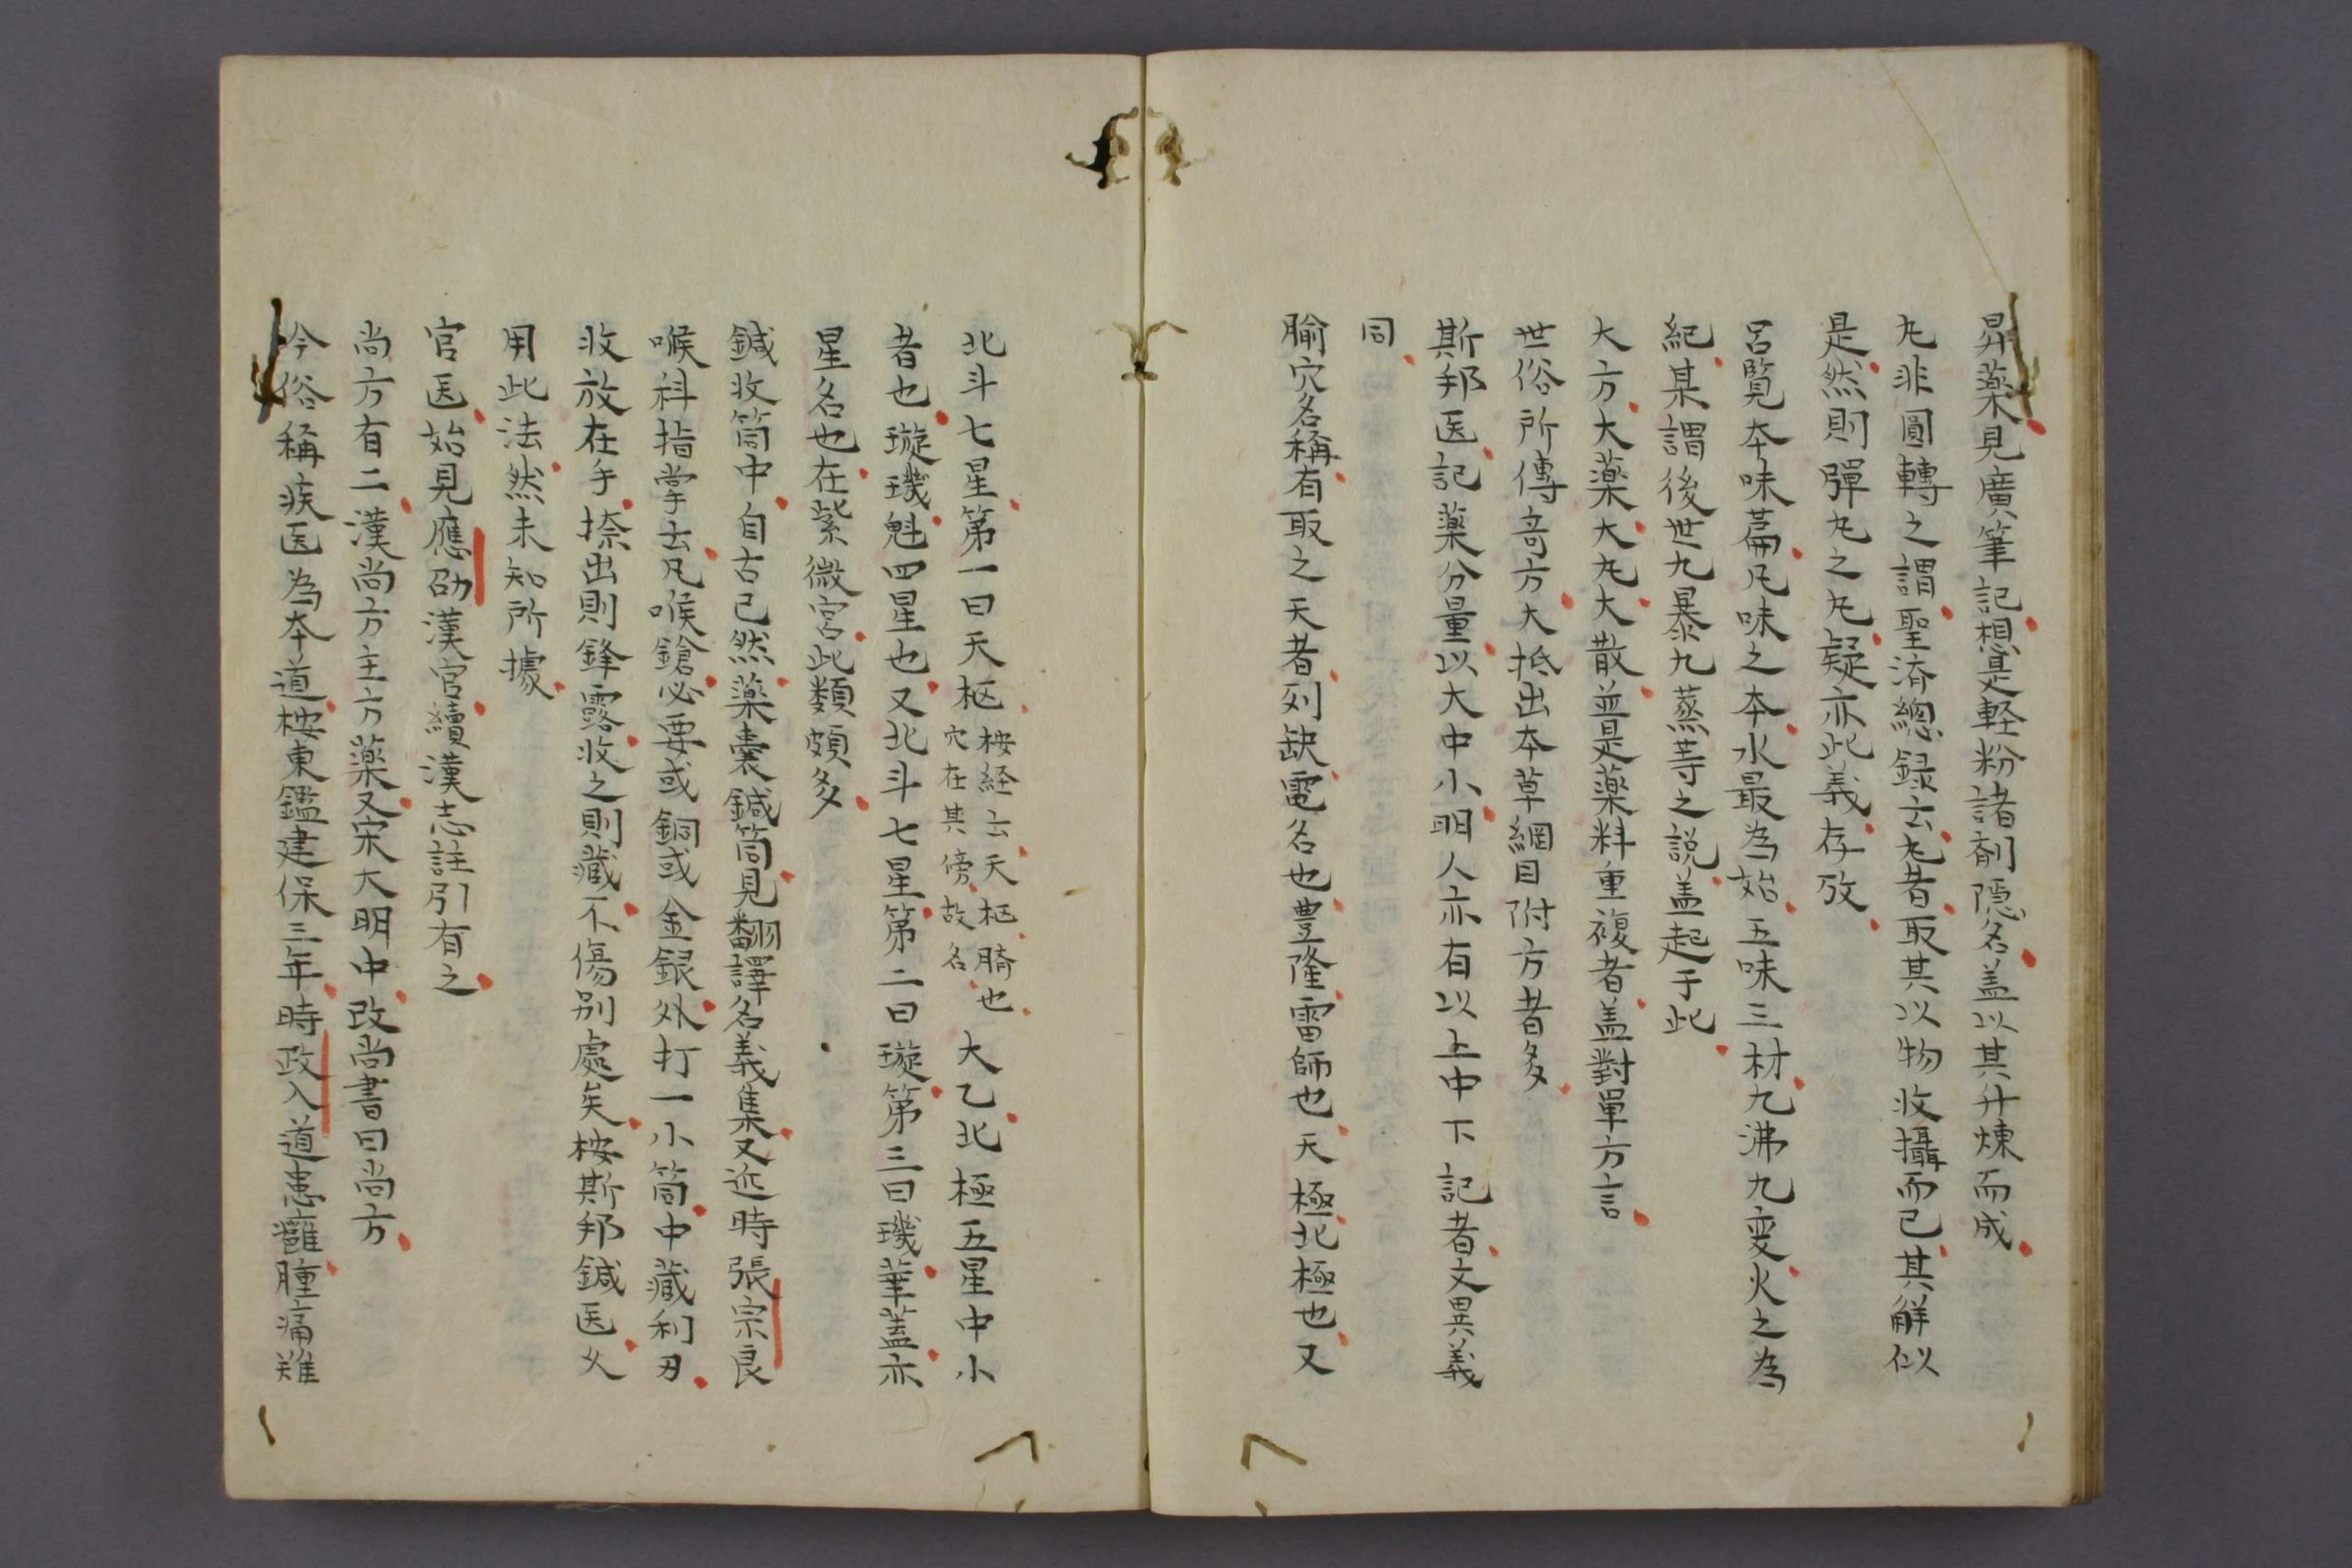 昇藥見廣筆記想是軽粉諸劑隱名盖以其升煉而成
丸非圓轉之謂聖済總録云丸者取其以物收攝而已其觧似
是然則彈丸之丸疑亦此義存攷
呂覧本味篇凡味之本水最為始五味三材九沸九変火之為
紀某謂後世九暴九蒸䓁之説盖起于此
大方大藥大丸大散並是藥料重複者盖對單方言
世俗所傳竒方大抵出本草綱目附方者多
斯邦医記藥分量以大中小明人亦有以上中下記者文異義
同
腧穴名稱有取之天者列缺電名也豊隆雷師也天極北極也又
北斗七星第一曰天枢桉経云天枢臍也穴在其傍故名大乙北極五星中小
者也璇璣魁四星也又北斗七星第二曰璇第三曰璣華蓋亦
星名也在紫微宮此類頗多
鍼收筒中自古已然藥嚢鍼筒見翻譯名義集又近時張宗良
喉科指掌云凡喉鎗必要或銅或金銀外打一小筒中藏利刃
收放在手捺出則鋒露收之則藏不傷别處矣桉斯邦鍼医乆
用此法然未知所據
官医始見應劭漢官續漢志註引有之
尚方有二漢尚方主方藥又宋大明中改尚書曰尚方
今俗稱疾医為本道桉東鑑建保三年時政入道患癰腫痛難